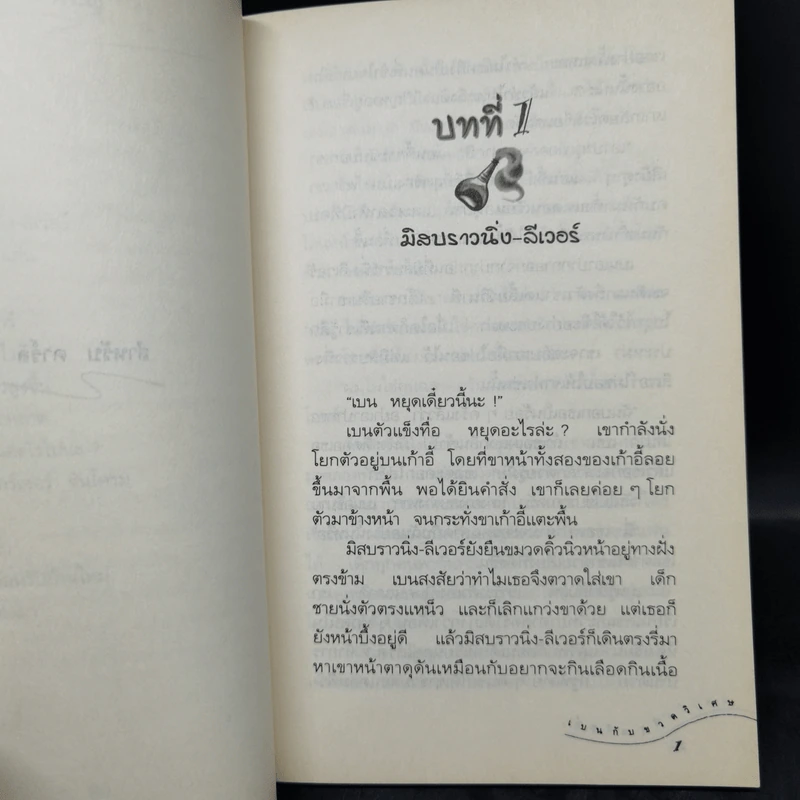 บทที่ 1
มิสบราวนิ่ง-ลีเวอร์
"เบน หยุดเดี๋ยวนี้นะ !"
เบนตัวแข็งทื่อ หยุดอะไรล่ะ ? เขากำลังนั่ง
โยกตัวอยู่บนเก้าอี้ โดยที่ขาหน้าทั้งสองของเก้าอี้ลอย
ขึ้นมาจากพื้น พอได้ยินคำสั่ง เขาก็เลยค่อย ๆ โยก
ตัวมาข้างหน้า จนกระทั่งขาเก้าอี้แตะพื้น
มิสบราวนิ่ง-ลีเวอร์ยังยืนขมวดคิ้วนิ่วหน้าอยู่ทางฝั่ง
ตรงข้าม เบนสงสัยว่าทำไมเธอจึงตวาดใส่เขา เด็ก
ชายนั่งตัวตรงแหน็ว และก็เลิกแกว่งขาด้วย แต่เธอก็
ยังหน้าบึ้งอยู่ดี แล้วมิสบราวนิ่ง-ลีเวอร์ก็เดินตรงรี่มา
หาเขาหน้าตาดุดันเหมือนกับอยากจะกินเลือดกินเนื้อ
เบนกับขวดวิเศษ
1
สำหรับ คาร์ล